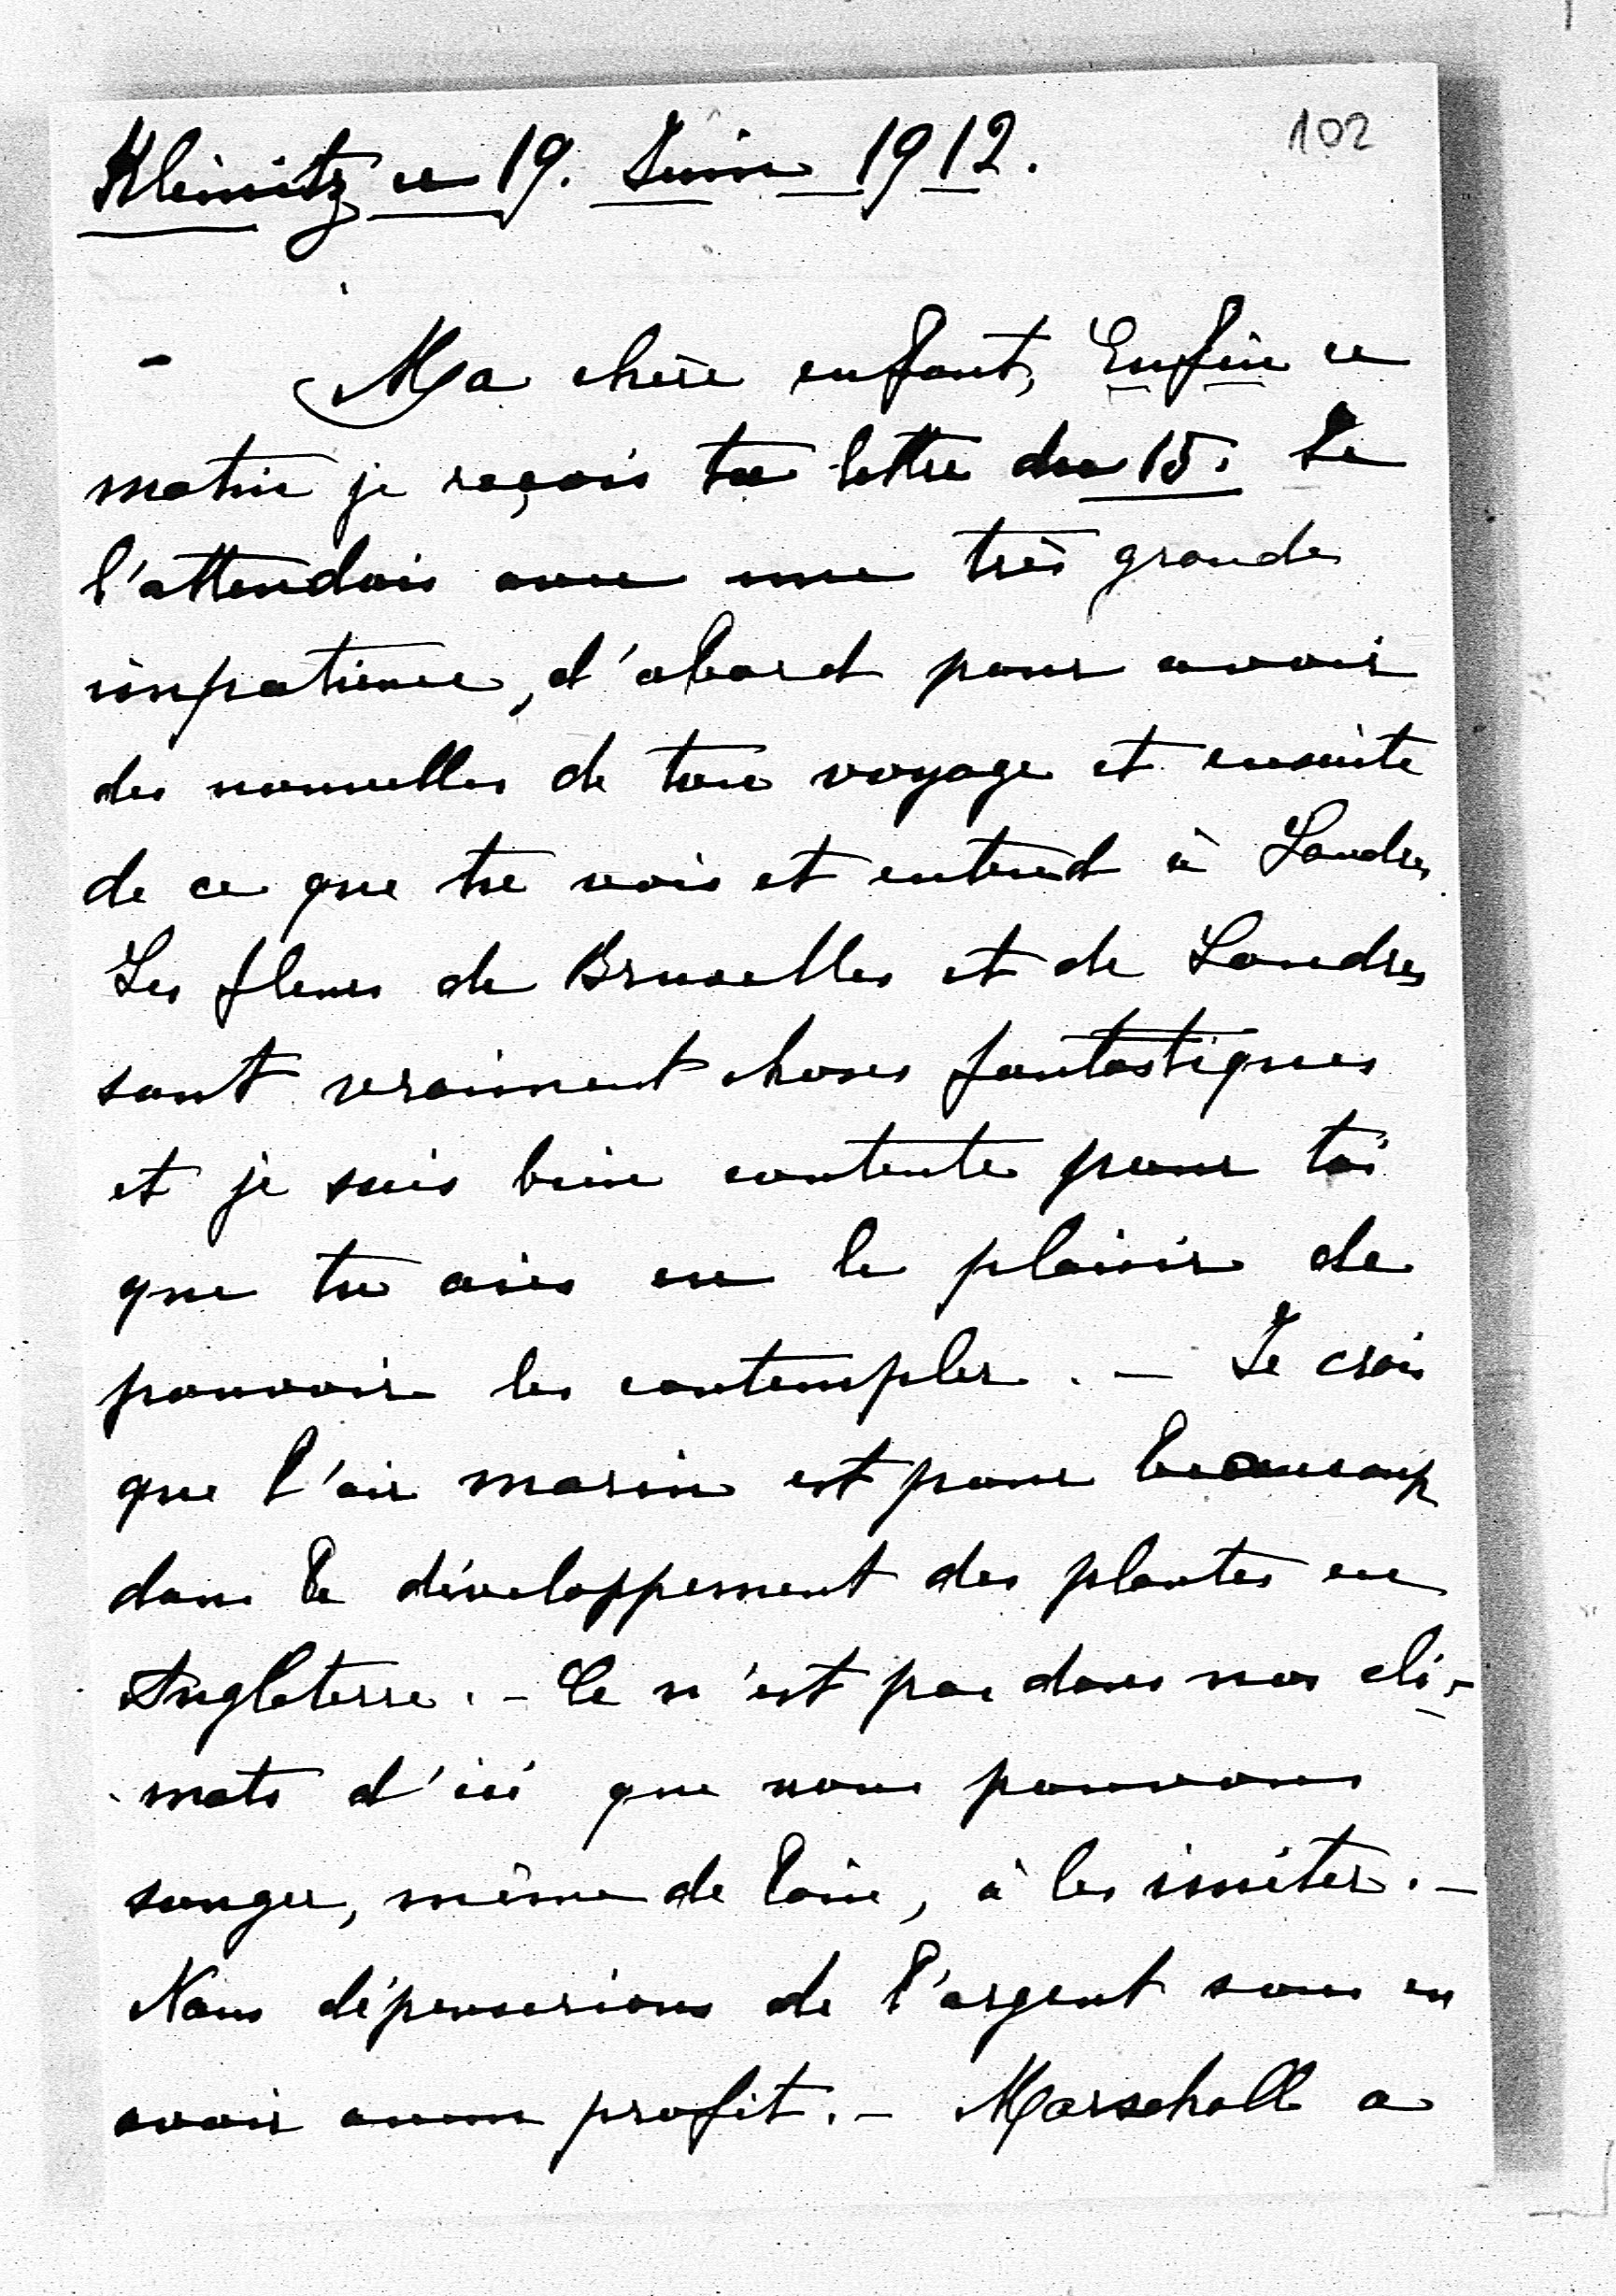 Kleinitz ce 19. Juin 1912.
102
Ma chère enfant, Enfin ce
matin je reçois ta lettre du 15. Je
l'attendais avec une très grande
impatience, d'abord pour avoir
des nouvelles de ton voyage et ensuite
de ce que tu vois et entend à Londres
Les fleurs de Bruxelles et de Londres
sont vraiment choses fantastiques
et je suis bien contente pour toi
que tu aies eu le plaisir de
pouvoir les contempler. – Je crois
que l'air marin est pour beaucoup
dans le développement des plantes en
Angleterre. – Ce n'est pas dans nos cli-
mats d'ici que nous pouvons
songer, même de loin, à les imiter. –
Nous dépenserions de l'argent sans en
avoir aucun profit. – Marschall a